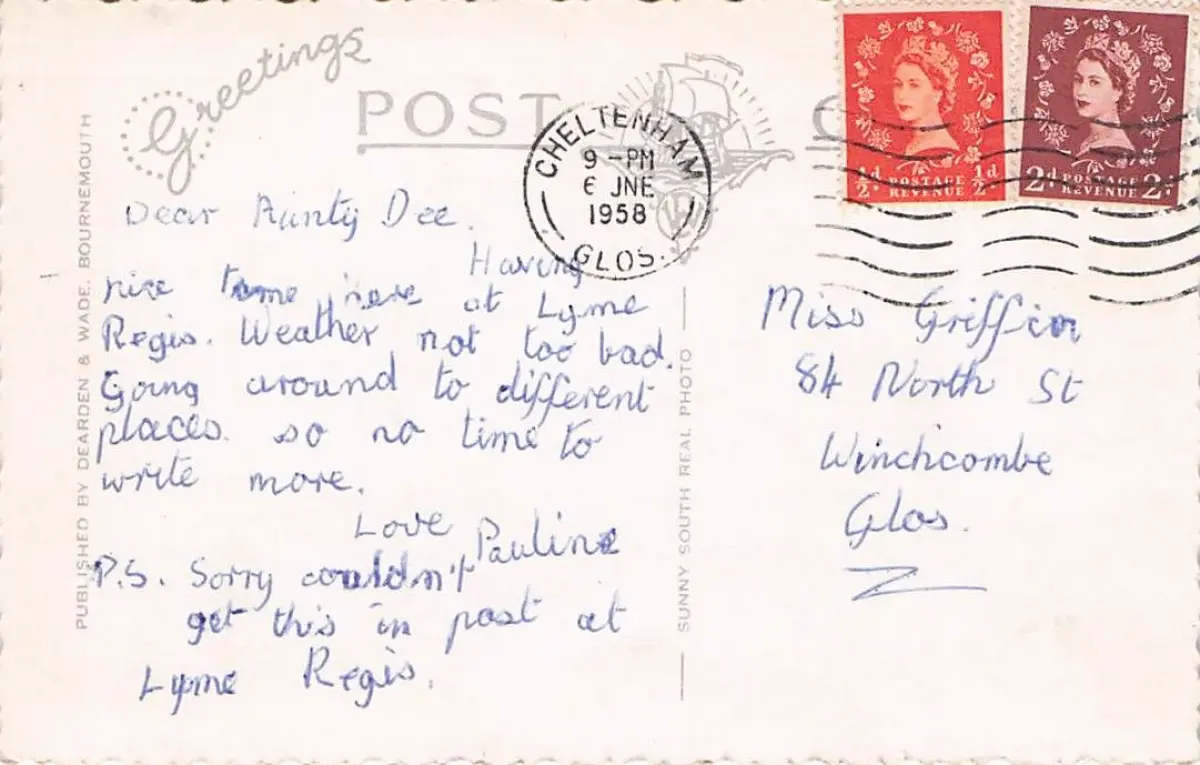 Greetings
POST
PUBLISHED BY DEARDEN & WADE, BOURNEMOUTH
Dear Aunty Dee.
Having
nice time here at Lyme
Regis. Weather not too bad.
Going around to different
places. so no time to
write more.
Love Pauline
P.S. Sorry couldn't
get this in post at
Lyme Regis.
SUNNY SOUTH REAL PHOTO
CHELTENHAM
9 - PM
6 JNE
1958
GLOS.
½d POSTAGE ½d
REVENUE
2d POSTAGE 2d
REVENUE
Miss Griffin
84 North St
Winchcombe
Glos.